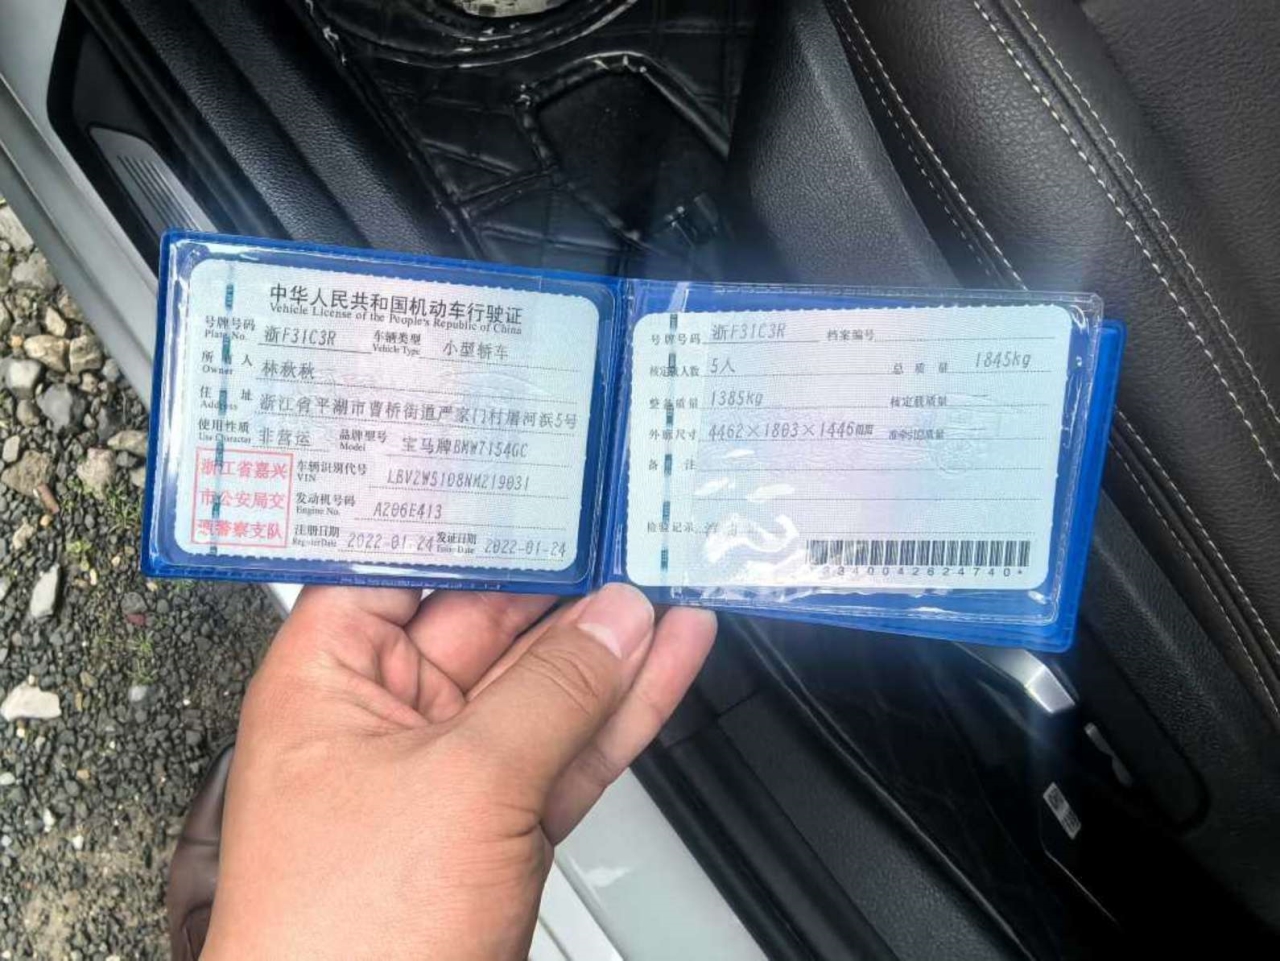 中华人民共和国机动车行驶证
Vehicle License of the People's Republic of China
号牌号码 Plate No. 浙F31C3R 车辆类型 Vehicle Type 小型轿车
所有人 Owner 林秋秋
住址 Address 浙江省平湖市曹桥街道严家门村屠河浜5号
使用性质 Use Character 非营运 品牌型号 Model 宝马牌BMW7154GC
浙江省嘉兴
市公安局交
通警察支队
车辆识别代号 VIN LBV2W5108NM219031
发动机号码 Engine No. A206E413
注册日期 Register Date 2022-01-24 发证日期 Issue Date 2022-01-24
号牌号码 浙F31C3R 档案编号
核定载人数 5人 总质量 1845kg
整备质量 1385kg 核定载质量
外廓尺寸 4462×1803×1446mm 准牵引总质量
备注
检验记录
*3340042624740*